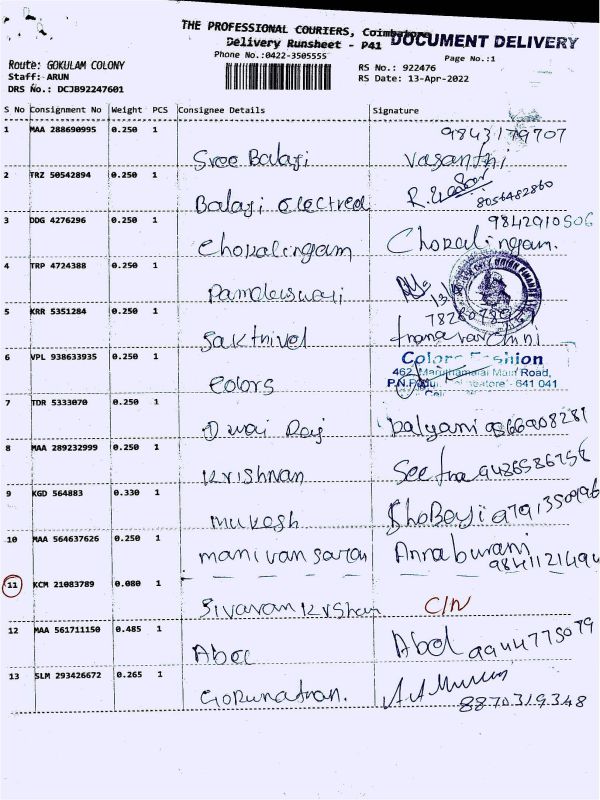 THE PROFESSIONAL COURIERS, Coimbatore
Delivery Runsheet - P41
DOCUMENT DELIVERY
Phone No.:0422-3505555
Page No.:1
Route: GOKULAM COLONY
Staff: ARUN
DRS No.: DCJB92247601
RS No.: 922476
RS Date: 13-Apr-2022
S No Consignment No Weight PCS Consignee Details Signature
1 MAA 288690995 0.250 1 9843179707
Sree Balaji Vasanthi
2 TRZ 50542894 0.250 1
Balaji electred 8056482860
3 DDG 4276296 0.250 1 9842910506
Chokalingam Chokalingam.
4 TRP 4724388 0.250 1
5 KRR 5351284 0.250 1
Sakthivel
6 VPL 938633935 0.250 1 Colors Fashion
462, Maruthamalai Main Road,
Colors - 641 041
7 TDR 5333070 0.250 1
Durai Raj Kalyani 9566908281
8 MAA 289232999 0.250 1
Krishnan Seetha 9486586756
9 KGD 564883 0.330 1
Mukesh 9791350996
10 MAA 564637626 0.250 1
manivan saran Annaburani
11 KCM 21083789 0.080 1
Sivavan Krshan C/N
12 MAA 561711150 0.485 1
Abel Abel 9944775079
13 SLM 293426672 0.265 1
Gokunathan.
8870319348